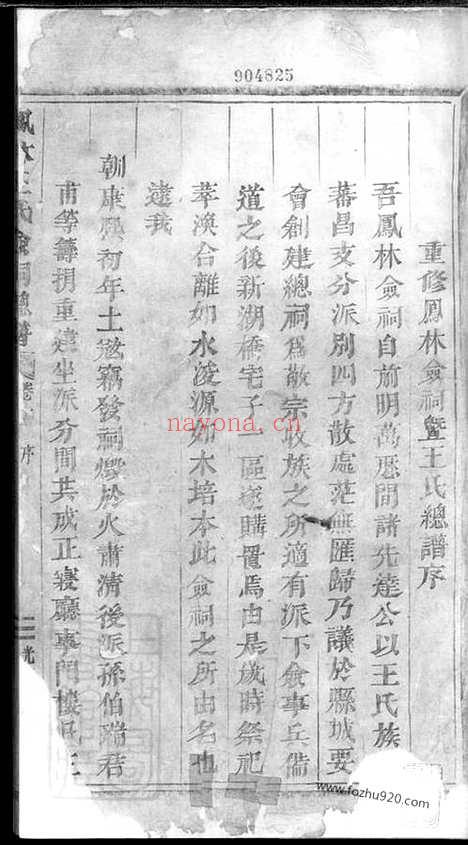 904825
重修鳳林僉祠暨王氏總譜序
吾鳳林僉祠自前明萬厯間諸先達公以王氏族
蕃昌支分派別四方散處茫無匯歸乃議於縣城要
會創建總祠爲敬宗收族之所適有派下僉事兵備
道之後新湖橋宅子一區遂購置焉由是歲時祭祀
萃渙合離如水浚源如木培本此僉祠之所由名也
逮我
朝康熙初年土寇竊發祠燬於火肅清後派孫伯瑞君
甫等籌捐重建坐派分間共成正寢廳事門樓
氏僉祠總譜 卷 序
nayona.cn
www.fozhu920.com